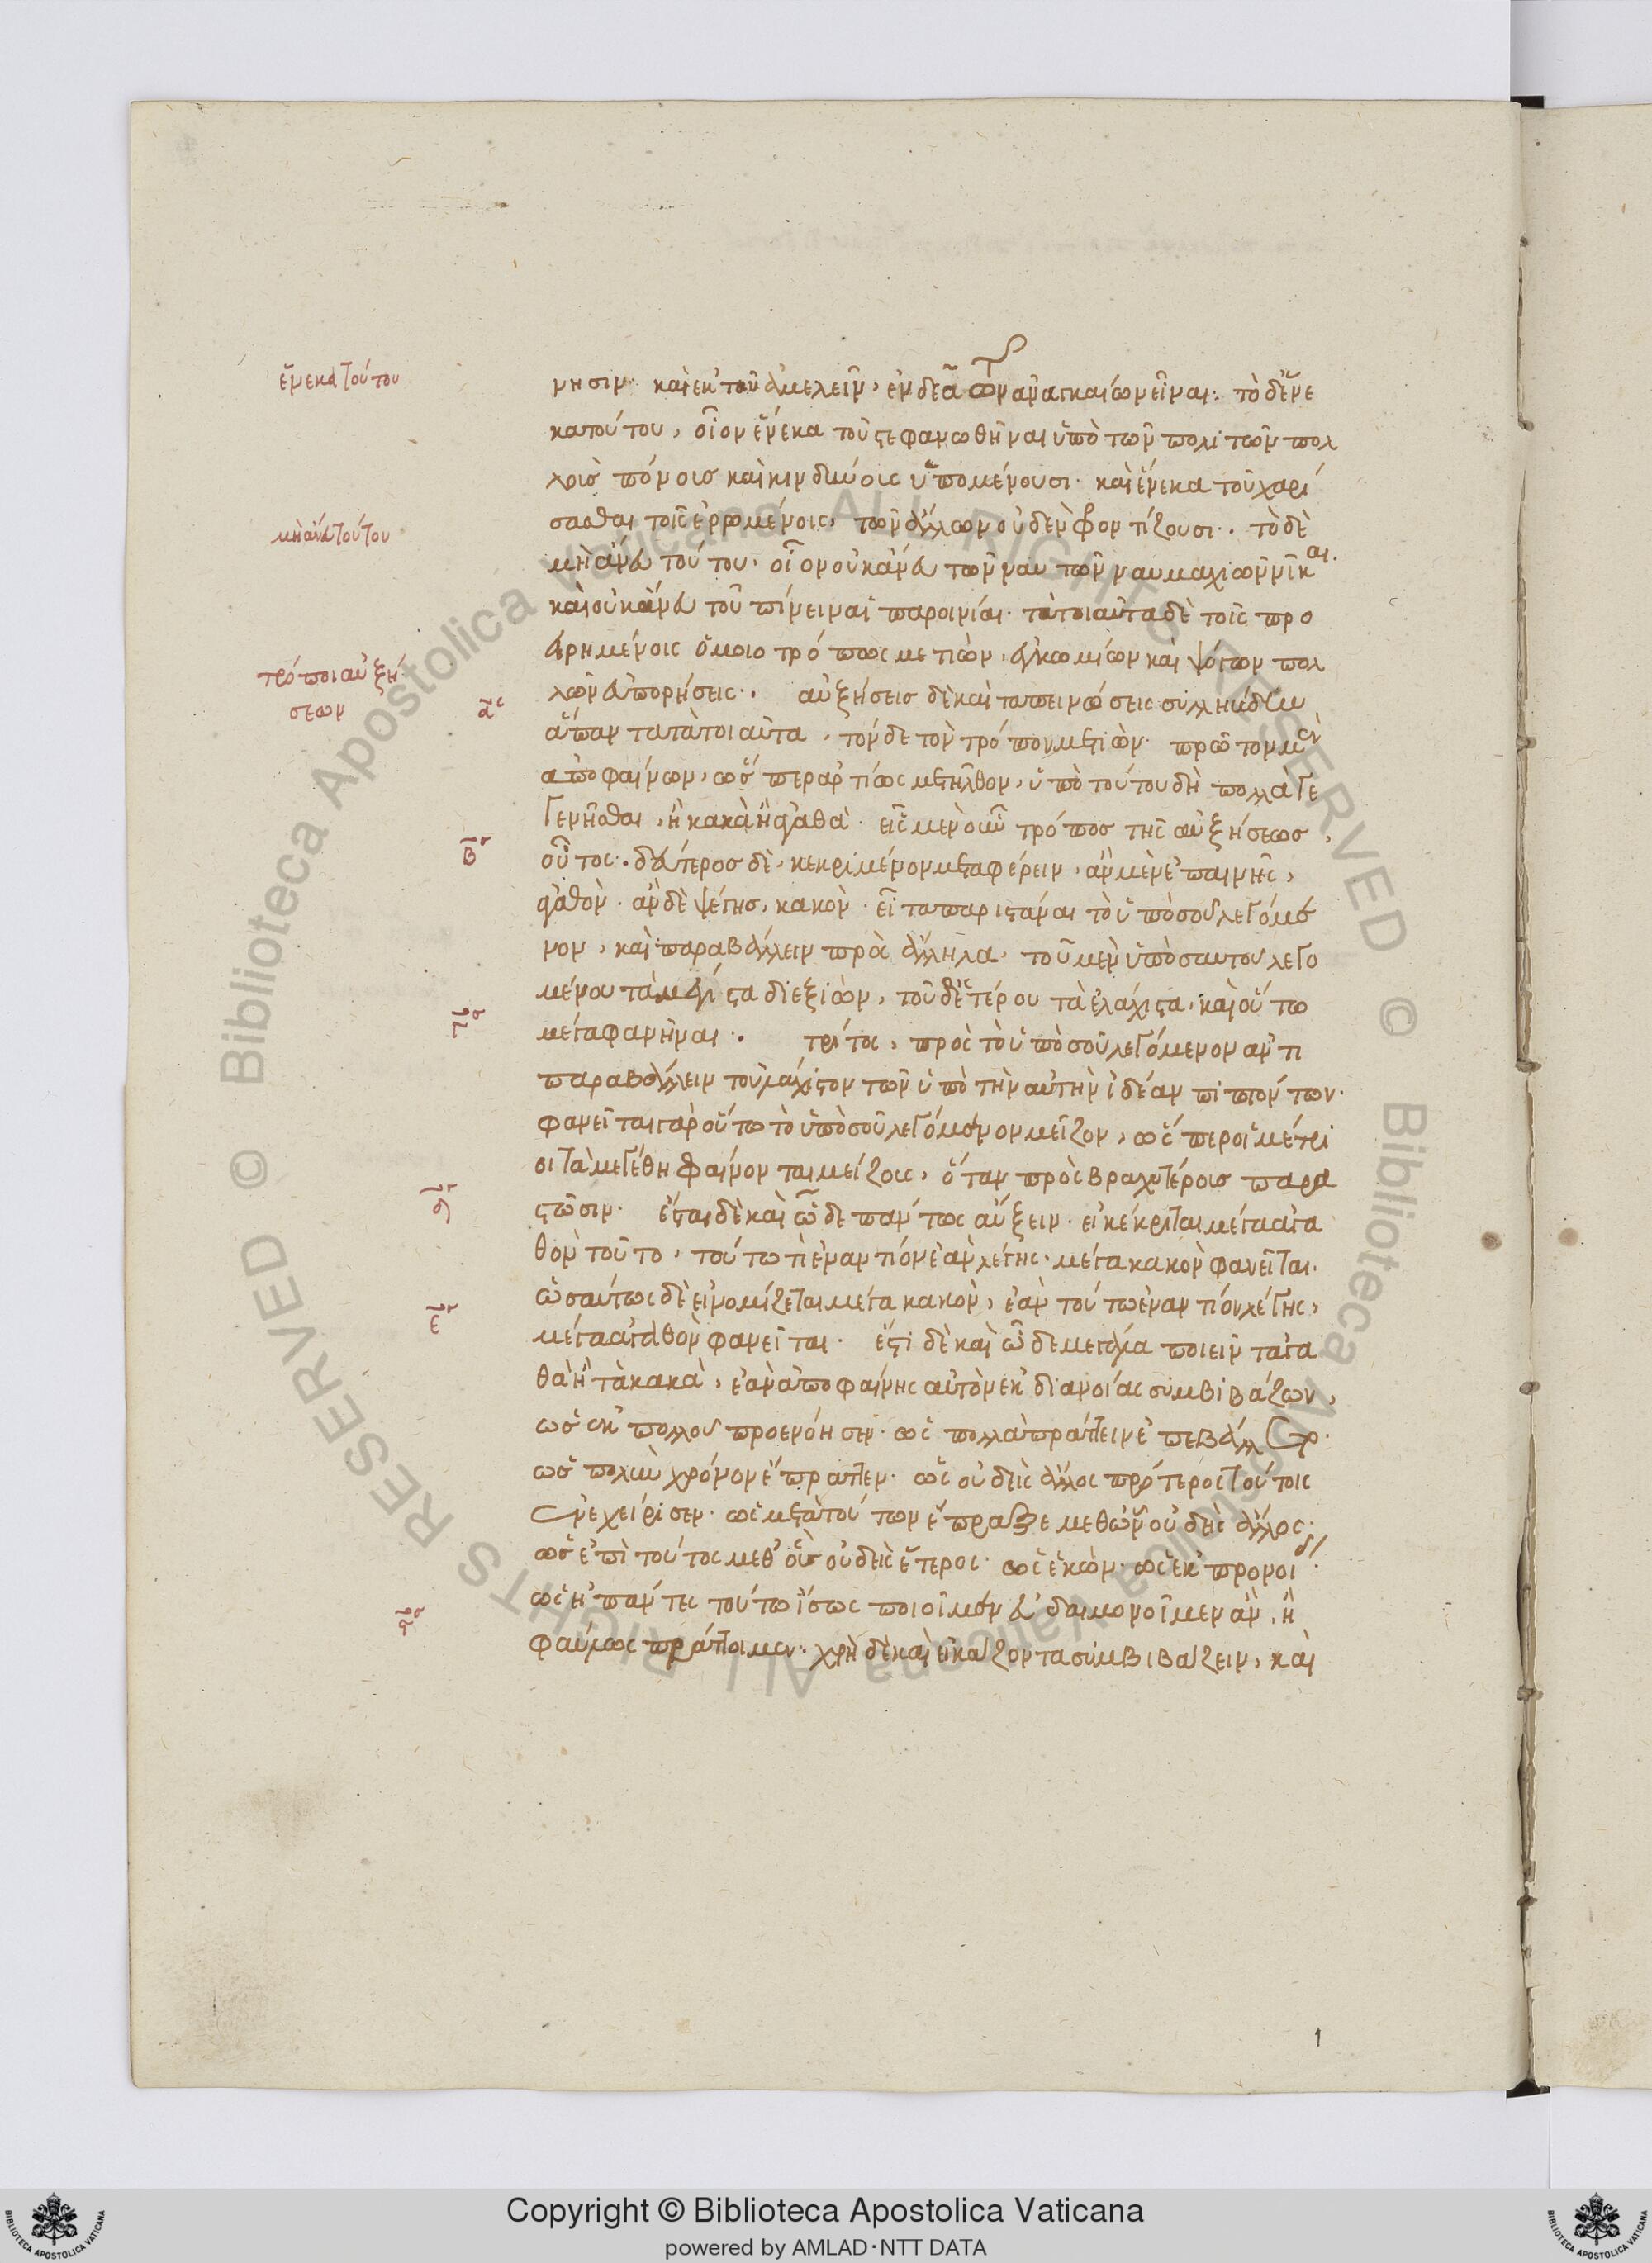 ἕνεκα τούτου
νησιν· καὶ ἐκ τοῦ ἀμελεῖν, ἐνδεᾶ τῶν ἀναγκαίων εἶναι: τὸ δ' ἕνε
κα τούτου, οἷον ἕνεκα τοῦ στεφανωθῆναι ὑπὸ τῶν πολιτῶν πολ
λοῖς πόνοις καὶ κινδύνοις ὑπομένουσι· καὶ ἕνεκα τοῦ χαρί
σασθαι τοῖς ἐρωμένοις, τῶν ἄλλων οὐδὲν φροντίζουσι·. τὸ δὲ
μὴ ἄνευ τούτου
μὴ ἄνευ τούτου, οἷον οὐκ ἄνευ τῶν ναυτῶν ναυμαχιῶν νῖκαι.
καὶ οὐκ ἄνευ τοῦ πίνειν αἱ παροινίαι· τὰ τοιαῦτα δὲ τοῖς προ
ειρημένοις ὁμοιοτρόπως μετιὼν, ἐγκωμίων καὶ ψόγων πολ
τρόποι αὐξή
σεων
α^ος
λῶν εὐπορήσεις·. αὐξήσεις δὲ καὶ ταπεινώσεις συλλήβδην
ἅπαντα τὰ τοιαῦτα, τόνδε τὸν τρόπον μετιών· πρῶτον μὲν
ἀποφαίνων, ὥσπερ ἀρτίως μετῆλθον, ὑπὸ τούτου δὴ πολλὰ γε
γενῆσθαι, ἢ κακὰ ἢ ἀγαθά· εἷς μὲν οὖν τρόπος τῆς αὐξήσεως,
β^ος
οὗτος· δεύτερος δὲ, κεκριμένον μεταφέρειν, ἂν μὲν ἐπαινῇς,
ἀγαθόν· ἂν δὲ ψέγῃς, κακόν· εἶτα παριστάναι τὸ ὑπὸ σοῦ λεγόμε
νον, καὶ παραβάλλειν πρὸς ἄλληλα, τοῦ μὲν ὑπὸ σαυτοῦ λεγο
μένου τὰ μέγιστα διεξιών, τοῦ δὲ ἑτέρου τὰ ἐλάχιστα, καὶ οὕτω
γ^ος
μέγα φανῆναι·. τρίτος, πρὸς τὸ ὑπὸ σοῦ λεγόμενον ἀντι
παραβάλλειν τοὐλάχιστον τῶν ὑπὸ τὴν αὐτὴν ἰδέαν πιπτόντων·
φανεῖται γὰρ οὕτω τὸ ὑπὸ σοῦ λεγόμενον μεῖζον, ὥσπερ οἱ μέτρι
οι τὰ μεγέθη φαίνονται μείζους, ὅταν πρὸς βραχυτέρους παρα
δ^ος
στῶσιν· ἔσται δὲ καὶ ὧδε πάντως αὔξειν· εἰ κέκριται μέγα ἀγα
θὸν τοῦτο, τούτῳ τι ἐναντίον ἐὰν λέγῃς· μέγα κακὸν φανεῖται·
ὡσαύτως δὲ εἰ νομίζεται μέγα κακὸν, ἐὰν τούτῳ ἐναντίον λέγῃς,
ε^ος
μέγα ἀγαθὸν φανεῖται· ἔστι δὲ καὶ ὧδε μεγάλα ποιεῖν τἀγα
θὰ ἢ τὰ κακὰ, ἐὰν ἀποφαίνῃς αὐτὸν ἐκ διανοίας συμβιβάζων,
ὡς ἐκ πολλοῦ προενόησεν· ὡς πολλὰ πράττειν ἐπεβάλλετο·
ὡς πολὺν χρόνον ἔπραττεν· ὡς οὐδεὶς ἄλλος πρότερος τούτοις
ἐνεχείρισεν· ὡς μετὰ τούτων ἔπραξε μεθ' ὧν οὐδεὶς ἄλλος·
ὡς ἐπὶ τούτοις μεθ' οὓς οὐδεὶς ἕτερος· ὡς ἑκών· ὡς ἐκ προνοίας·
ϛ^ος
ὡς εἰ πάντες τούτῳ ἴσως ποιοῖμεν εὐδαιμονοῖμεν ἂν, ἢ
φαύλως πράττοιμεν· χρὴ δὲ καὶ εἰκάζοντα συμβιβάζειν, καὶ
1
© Biblioteca Apostolica Vaticana ALL RIGHTS RESERVED
© Biblioteca Apostolica Vaticana ALL RIGHTS RESERVED
Copyright © Biblioteca Apostolica Vaticana
powered by AMLAD·NTT DATA
BIBLIOTECA APOSTOLICA VATICANA
BIBLIOTECA APOSTOLICA VATICANA